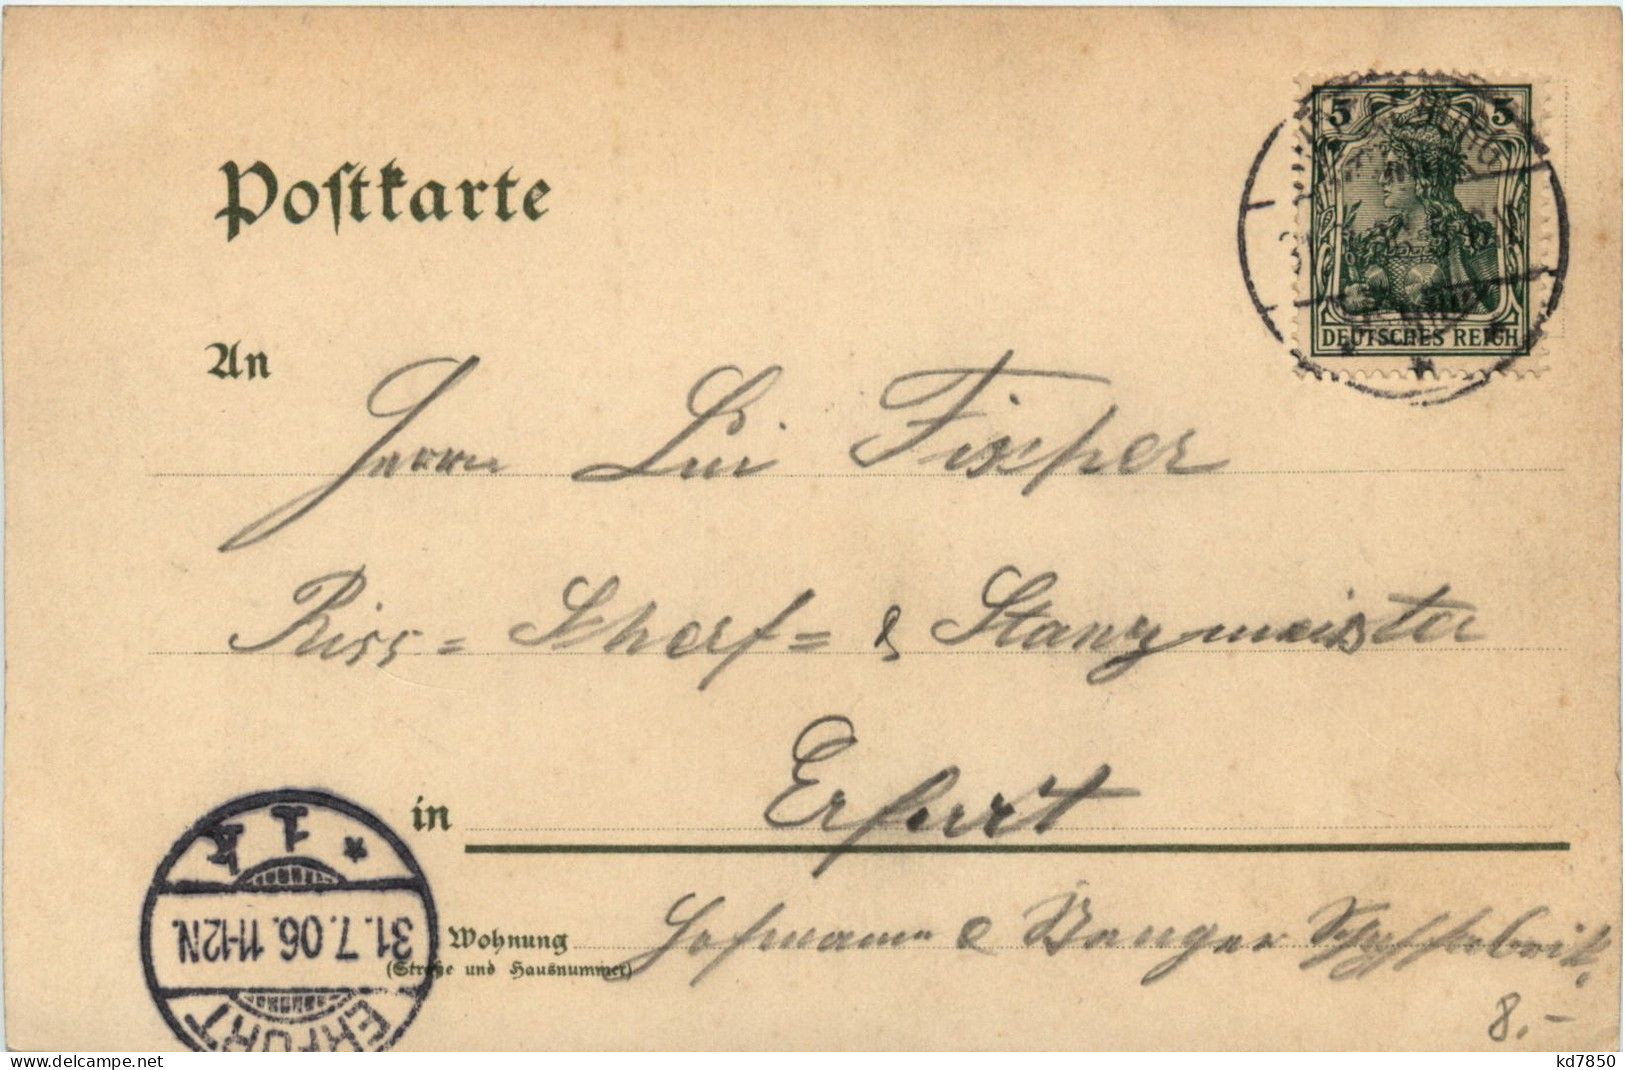 Postkarte
5 5
DEUTSCHES REICH
An
Herrn Lui Fischer
Riss = Scherf = & Stanzmeister
in Erfurt
Wohnung Hofmann & Wenger
(Straße und Hausnummer)
ERFURT
31.7.06.11-12N.
* 1 k
8.-
kd7850